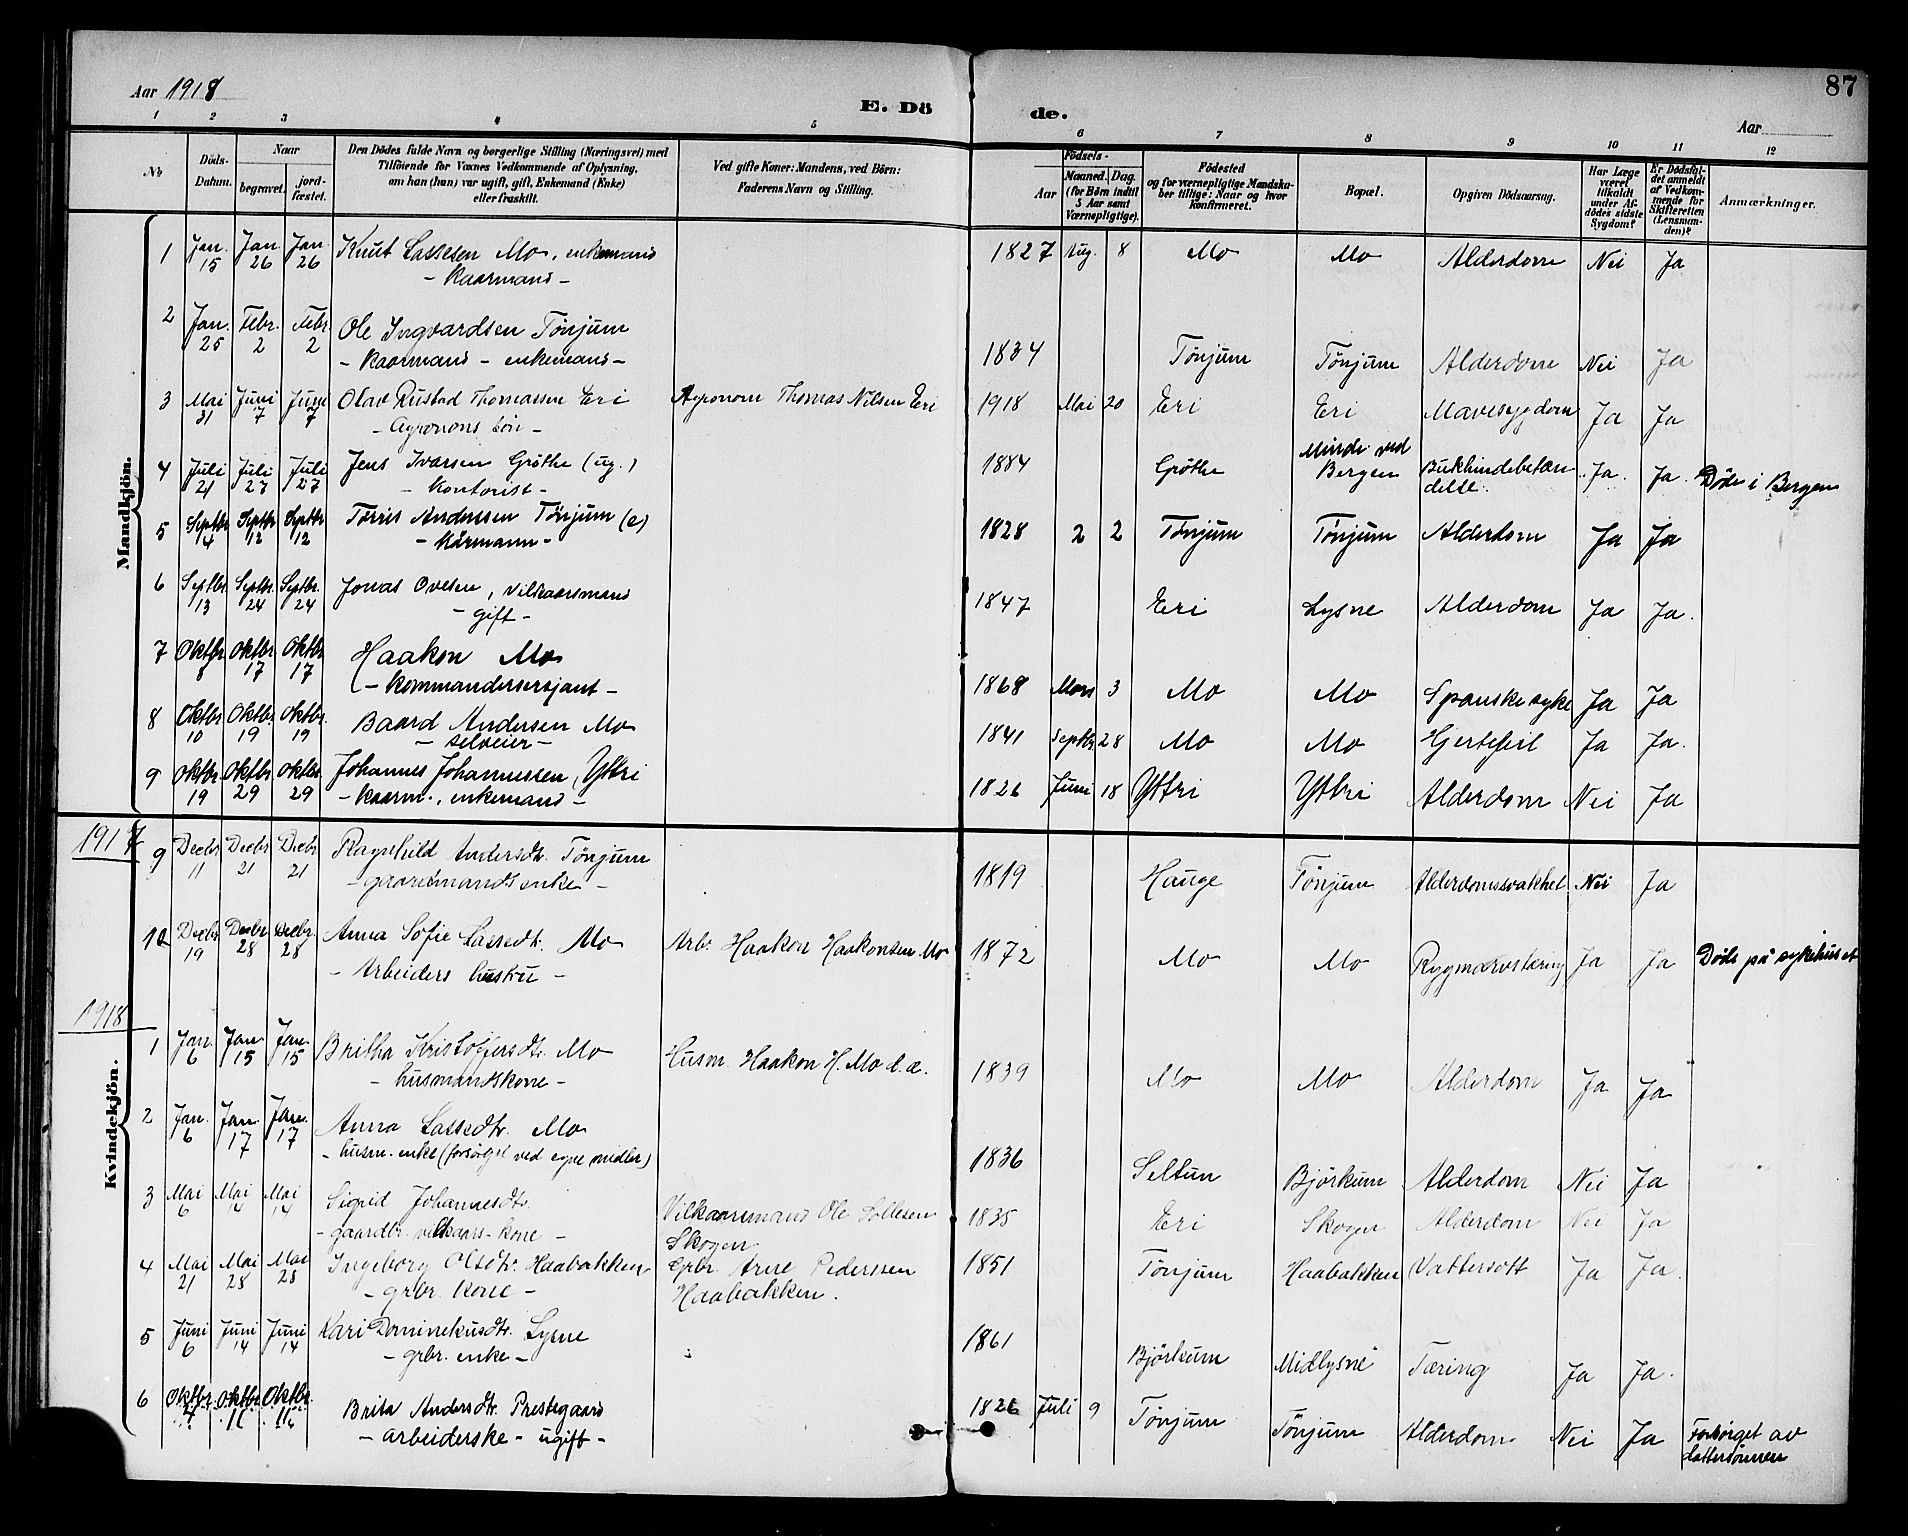 87
Aar 1918
E. Døde.
Aar
1 2 3 4 5 6 7 8 9 10 11 12
No
Døds-Datum.
Naar
begravet.
jordfæstet.
Den Dødes fulde Navn og borgerlige Stilling (Næringsvei) med
Tilføiende for Voxnes Vedkommende af Oplysning,
om han (hun) var ugift, gift, Enkemand (Enke)
eller fraskilt.
Ved gifte Koner: Mandens, ved Børn:
Faderens Navn og Stilling.
Fødsels-
Aar
Maaned. Dag.
(for Børn indtil
5 Aar samt
Værnepligtige).
Fødested
og for værnepligtige Mandskaber tillige: Naar og hvor
konfirmeret.
Bopæl.
Opgiven Dødsaarsag.
Har Læge
været
tilkaldt
under Afdødes sidste
Sygdom?
Er Dødsfaldet anmeldt
af Vedkommende for
Skifteretten
(Lensmanden)?
Anmærkninger.
Mandkjøn.
1 Jan. 15 Jan 26 Jan 26 Knut Lassesen Mo, enkemand 1827 Aug. 8 Mo Mo Alderdom Nei Ja
- Kaarmand -
2 Jan. 25 Febr. 2 Febr. 2 Ole Ingvardsen Tønjum 1834 Tønjum Tønjum Alderdom Nei Ja
- Kaarmand - enkemand -
3 Mai 31 Juni 7 Juni 7 Olav Rustad Thomassen Eri Agronom Thomas Nilsen Eri 1918 Mai 20 Eri Eri Mavesygdom Ja Ja
- Agronoms søn -
4 Juli 21 Juli 27 Juli 27 Jens Ivarsen Grøthe (ug.) 1884 Grøthe Minde ved Bergen Bukhindebetændelse. Ja. Ja. Døde i Bergen
- Kontorist -
5 Septbr 4 Septbr 12 Septbr 12 Tørris Anderssen Tønjum (e) 1828 2 2 Tønjum Tønjum Alderdom Ja Ja
- Kårmann -
6 Septbr. 13 Septbr. 24 Septbr. 24 Jonas Ovesen, vilkaarsmand 1847 Eri Lysne Alderdom Ja Ja.
- gift -
7 Oktbr 8 Oktbr 17 Oktbr 17 Haakon Mo 1868 Mars 3 Mo Mo Spanske syke Ja Ja
- Kommandersersjant -
8 Oktbr 10 Oktbr. 19 Oktbr. 19 Baard Andersen Mo 1841 Septbr 28 Mo Mo Hjertefeil Ja Ja.
- selveier -
9 Oktbr 19 Oktbr 29 Oktbr 29 Johannes Johannessen, Yttri 1826 Juni 18 Yttri Yttri Alderdom Nei Ja
- Kaarm., enkemand -
Kvindekjøn.
1917
9 Decbr 11 Decbr 21 Decbr 21 Ragnhild Andersdtr. Tønjum 1819 Hauge Tønjum Alderdomssvakhet Nei Ja
- gaardmands enke -
10 Decbr 19 Decbr 28 Decbr. 28 Anna Sofie Lassedtr. Mo Arb. Haakon Haakonsen Mo 1872 Mo Mo Rygmarvstæring Ja Ja Døde på sykehuset
- Arbeiders hustru -
1918
1 Jan. 6 Jan. 15 Jan. 15 Britha Kristoffersdtr. Mo Husm. Haakon H. Mo d.æ. 1839 Mo Mo Alderdom Ja Ja
- husmandskone -
2 Jan. 6 Jan. 17 Jan. 17 Anna Lassedtr. Mo 1836 Seltun Bjørkum Alderdom Nei Ja
- husm. enke (forsørget ved egne midler)
3 Mai 6 Mai 14 Mai 14 Sigrid Johannesdtr. Vilkaarsmand Ole Sollesen Skogen 1835 Eri Skogen Alderdom Nei Ja
- gaardbr. vilkaars-kone -
4 Mai 21 Mai 28 Mai 28 Ingeborg Olsdtr. Haabakken Gbr. Arne Pederssen Haabakken. 1851 Tønjum Haabakken Vattersott Ja Ja.
- grbr. kone -
5 Juni 6 Juni 14 Juni 14 Kari Dominekusdtr. Lysne 1861 Bjørkum Midlysne Tæring Ja Ja.
- grbr. enke -
6 Oktbr. 4 Oktbr. 11 Oktbr. 11 Brita Andersdtr. Prestegaard 1826 Juli 9 Tønjum Tønjum Alderdom. Nei Ja Forsørget av dattersønnen
- arbeiderske - ugift -